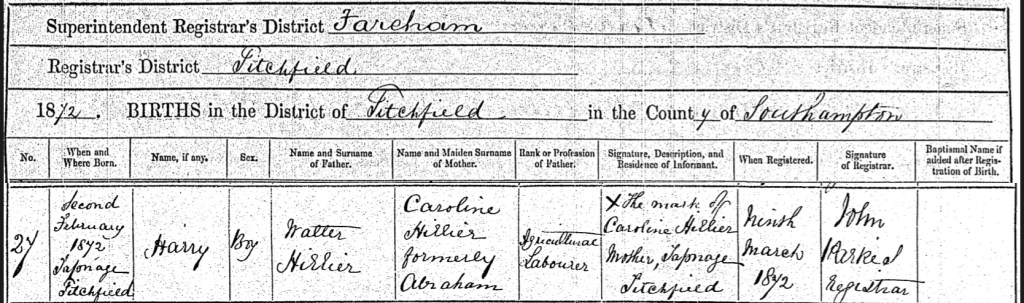 Superintendent Registrar's District Fareham
Registrar's District Titchfield.
1872. BIRTHS in the District of Titchfield in the County of Southampton
No. When and Where Born. Name, if any. Sex. Name and Surname of Father. Name and Maiden Surname of Mother. Rank or Profession of Father. Signature, Description, and Residence of Informant. When Registered. Signature of Registrar. Baptismal Name if added after Registration of Birth.
27
Second
February
1872
Saponage
Titchfield
Harry
Boy
Walter
Hillier
Caroline
Hillier
formerly
Abraham
Agricultural
Labourer
X The mark of
Caroline Hillier
Mother, Saponage
Titchfield
Ninth
March
1872
John
Registrar